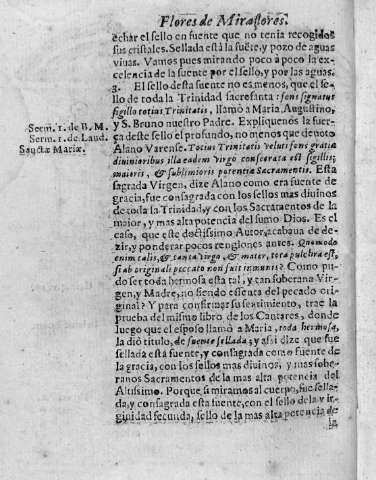 Flores de Miraflores.
echar el sello en fuente que no tenia recogidos
sus cristales. Sellada està la fuẽte, y pozo de aguas
vivas. Vamos pues mirando poco à poco la ex-
celencia de la fuente por el sello, y por las aguas.
3. El sello desta fuente no es menos, que el se-
llo de toda la Trinidad sacrosanta: fons signatus
sigillo totius Trinitatis, llamò a Maria Augustino,
y S. Bruno nuestro Padre. Expliquenos la fuer-
ça deste sello el profundo, no menos que devoto
Alano Varense. Totius Trinitatis veluti fons gratia
divinioribus illa eadem Virgo consecrata est sigillis,
maioris, & sublimioris potentia Sacramentis. Esta
sagrada Virgen, dize Alano como era fuente de
gracia, fue consagrada con los sellos mas divinos
de toda la Trinidad, y con los Sacramentos de la
maior, y mas alta potencia del sumo Dios. Es el
caso, que este doctissimo Autor, acabava de de-
zir, y ponderar pocos renglones antes. Quomodo
enim talis, & tanta virgo, & mater, tota pulchra est,
si ab originali peccato non fuit inmunis? Como pu-
do ser toda hermosa esta tal, y tan soberana Vir-
gen, y Madre, no siendo essenta del pecado ori-
ginal? Y para confirmar su sentimiento, trae la
prueba del mismo libro de los Cantares, donde
luego que el esposo llamò a Maria, toda hermosa,
la diò titulo, de fuente sellada, y assi dize que fue
sellada està fuente, y consagrada como fuente de
la gracia, con los sellos mas divinos, y mas sobe-
ranos Sacramentos de la mas alta potencia del
Altissimo. Porque si miramos al cuerpo, fue sella-
da, y consagrada esta fuente, con el sello de la vir-
ginidad fecunda, sello de la mas alta potencia de
la
Serm. 1. de B. M.
Serm. 1. de Laud.
Sanctæ Mariæ.